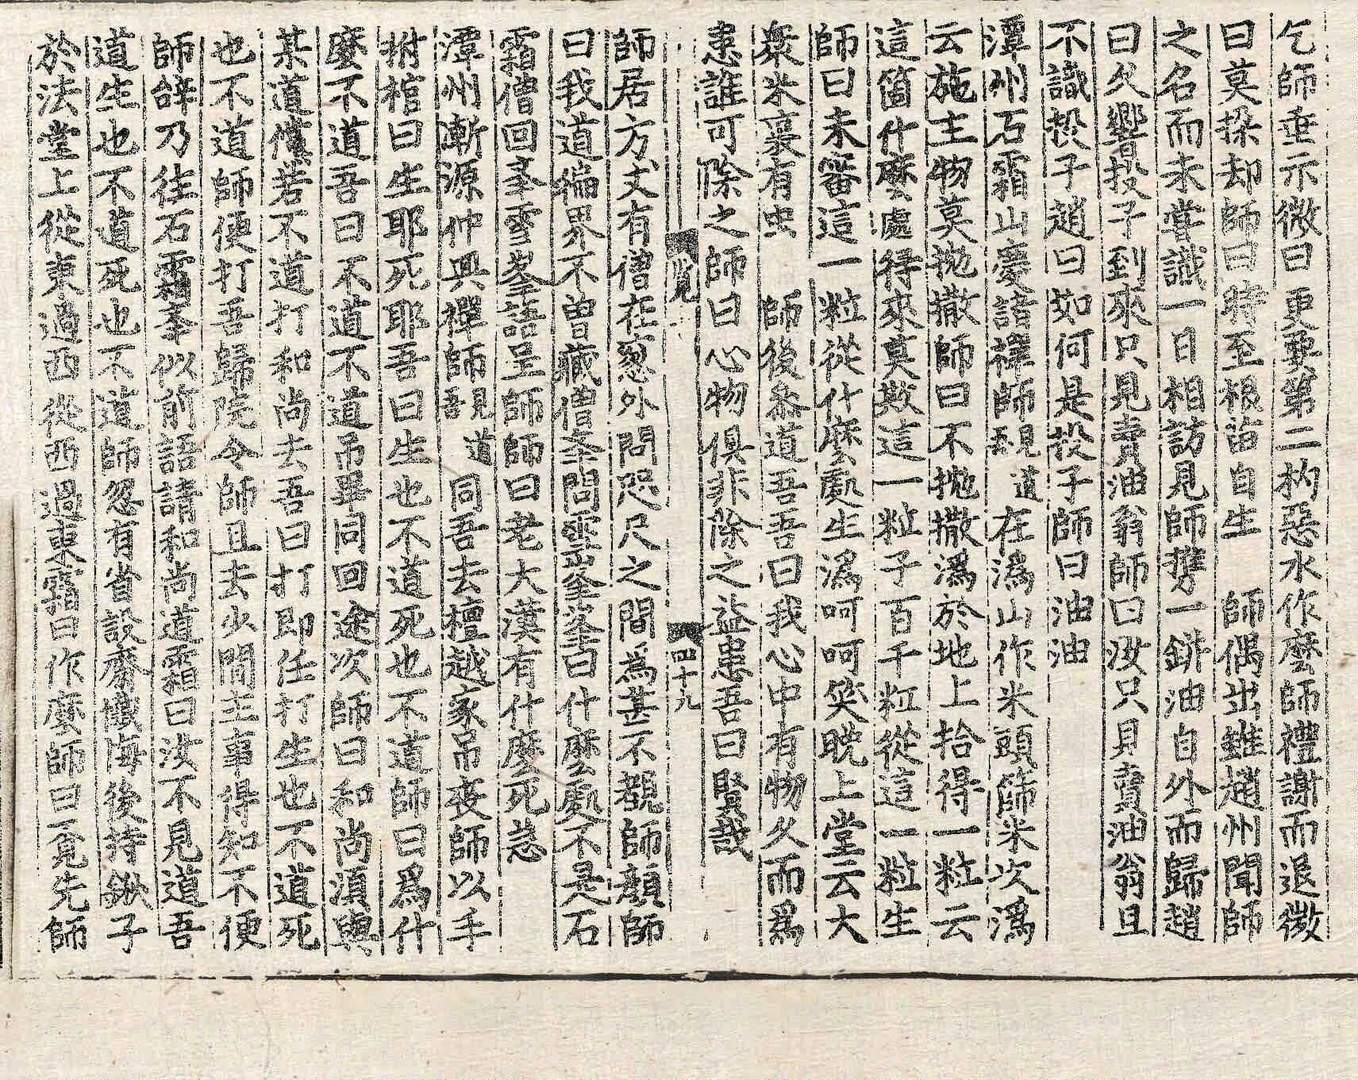 乞師垂示微曰更要第二杓惡水作麼師禮謝而退微
曰莫揬却師曰時至根苗自生 師偶出雖趙州聞師
之名而未嘗識一日相訪見師携一鉼油自外而歸趙
曰久響投子到來只見賣油翁師曰汝只見賣油翁且
不識投子趙曰如何是投子師曰油油
潭州石霜山慶諸禪師覩道在潙山作米頭篩米次潙
云施主物莫抛撒師曰不抛撒潙於地上拾得一粒云
這箇什麽處得來莫欺這一粒子百千粒從這一粒生
師曰未審這一粒從什麽處生潙呵呵笑晚上堂云大
衆米裏有虫 師後叅道吾吾曰我心中有物久而爲
患誰可除之師曰心物俱非除之益患吾曰賢哉
覽 四十九
師居方丈有僧在窓外問咫尺之間爲甚不覩師顔師
曰我道徧界不曾藏僧擧問雪峯峯曰什麽處不是石
霜僧回擧雪峯語呈師師曰老大漢有什麽死急
潭州漸源仲興禪師覩道吾同吾去檀越家吊丧師以手
拊棺曰生耶死耶吾曰生也不道死也不道師曰爲什
麽不道吾曰不道不道吊畢同回途次師曰和尚湏與
某道儻若不道打和尚去吾曰打即任打生也不道死
也不道師便打吾歸院令師且去少間主事得知不便
師辞乃往石霜擧似前語請和尚道霜曰汝不見道吾
道生也不道死也不道師忽有省設齋懺悔後持鍬子
於法堂上從東過西從西過東霜曰作麽師曰覓先師